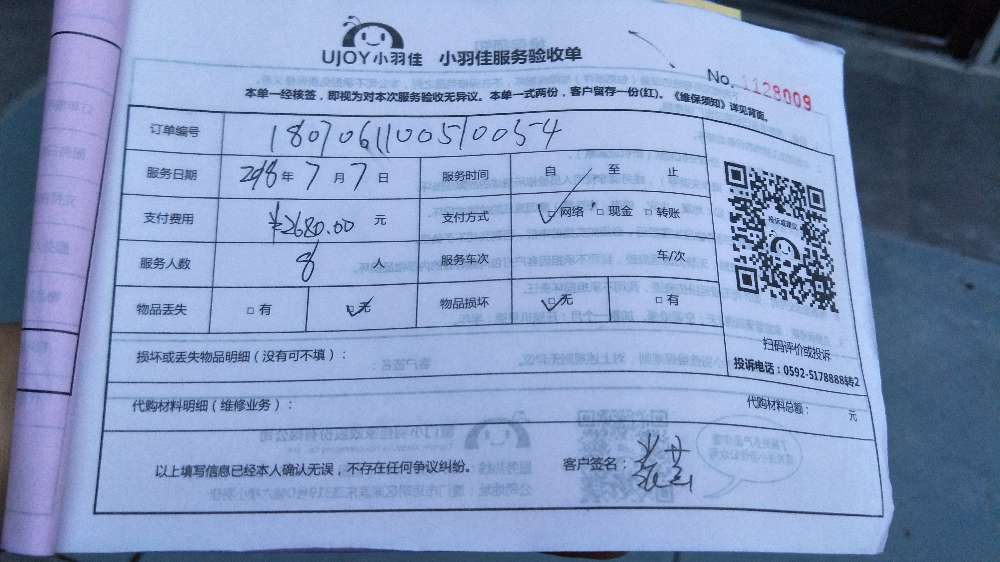 UJOY小羽佳 小羽佳服务验收单
No. 1128009
本单一经核签，即视为对本次服务验收无异议。本单一式两份，客户留存一份(红)。《维保须知》详见背面。
订单编号 1807061100510054
服务日期 2018年7月7日 服务时间 自 至 止
支付费用 ¥2680.00 元 支付方式 □网络 □现金 □转账
服务人数 8 人 服务车次 车/次
物品丢失 □有 □无 物品损坏 □无 □有
投诉或建议
扫码评价或投诉
投诉电话：0592-5178888转2
损坏或丢失物品明细（没有可不填）：
代购材料明细（维修业务）： 代购材料总额： 元
以上填写信息已经本人确认无误，不存在任何争议纠纷。 客户签名：